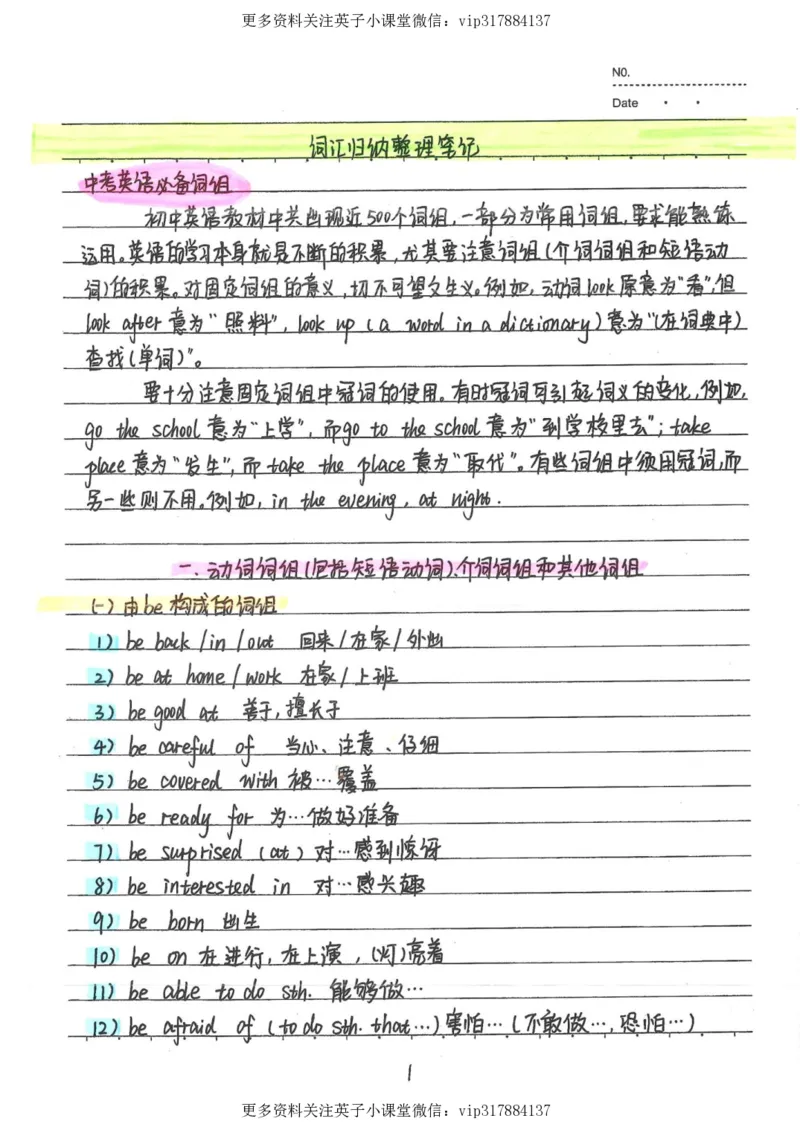 更多资料关注英子小课堂微信：vip317884137
NO.
Date
词汇归纳整理笔记
中考英语必备词组
初中英语教材中共出现近500个词组，一部分为常用词组，要求能熟练
运用。英语的学习本身就是不断的积累，尤其要注意词组(介词词组和短语动
词)的积累。对固定词组的意义，切不可望文生义。例如，动词look原意为“看”，但
look after 意为“照料”，look up (a word in a dictionary)意为“(在词典中)
查找(单词)”。
要十分注意固定词组中冠词的使用。有时冠词可引起词义的变化，例如，
go the school 意为“上学”，而go to the school 意为“到学校里去”；take
place 意为“发生”，而 take the place 意为“取代”。有些词组中须用冠词，而
另一些则不用。例如，in the evening, at night.
一、动词词组(包括短语动词)、介词词组和其他词组
(一) 由be构成的词组
1) be back /in /out 回来/在家/外出
2) be at home / work 在家/上班
3) be good at 善于，擅长于
4) be careful of 当心、注意、仔细
5) be covered with 被…覆盖
6) be ready for 为…做好准备
7) be surprised (at) 对…感到惊讶
8) be interested in 对…感兴趣
9) be born 出生
10) be on 在进行，在上演，(灯)亮着
11) be able to do sth. 能够做…
12) be afraid of (to do sth. that…) 害怕…(不敢做…，恐怕…)
1
更多资料关注英子小课堂微信：vip317884137